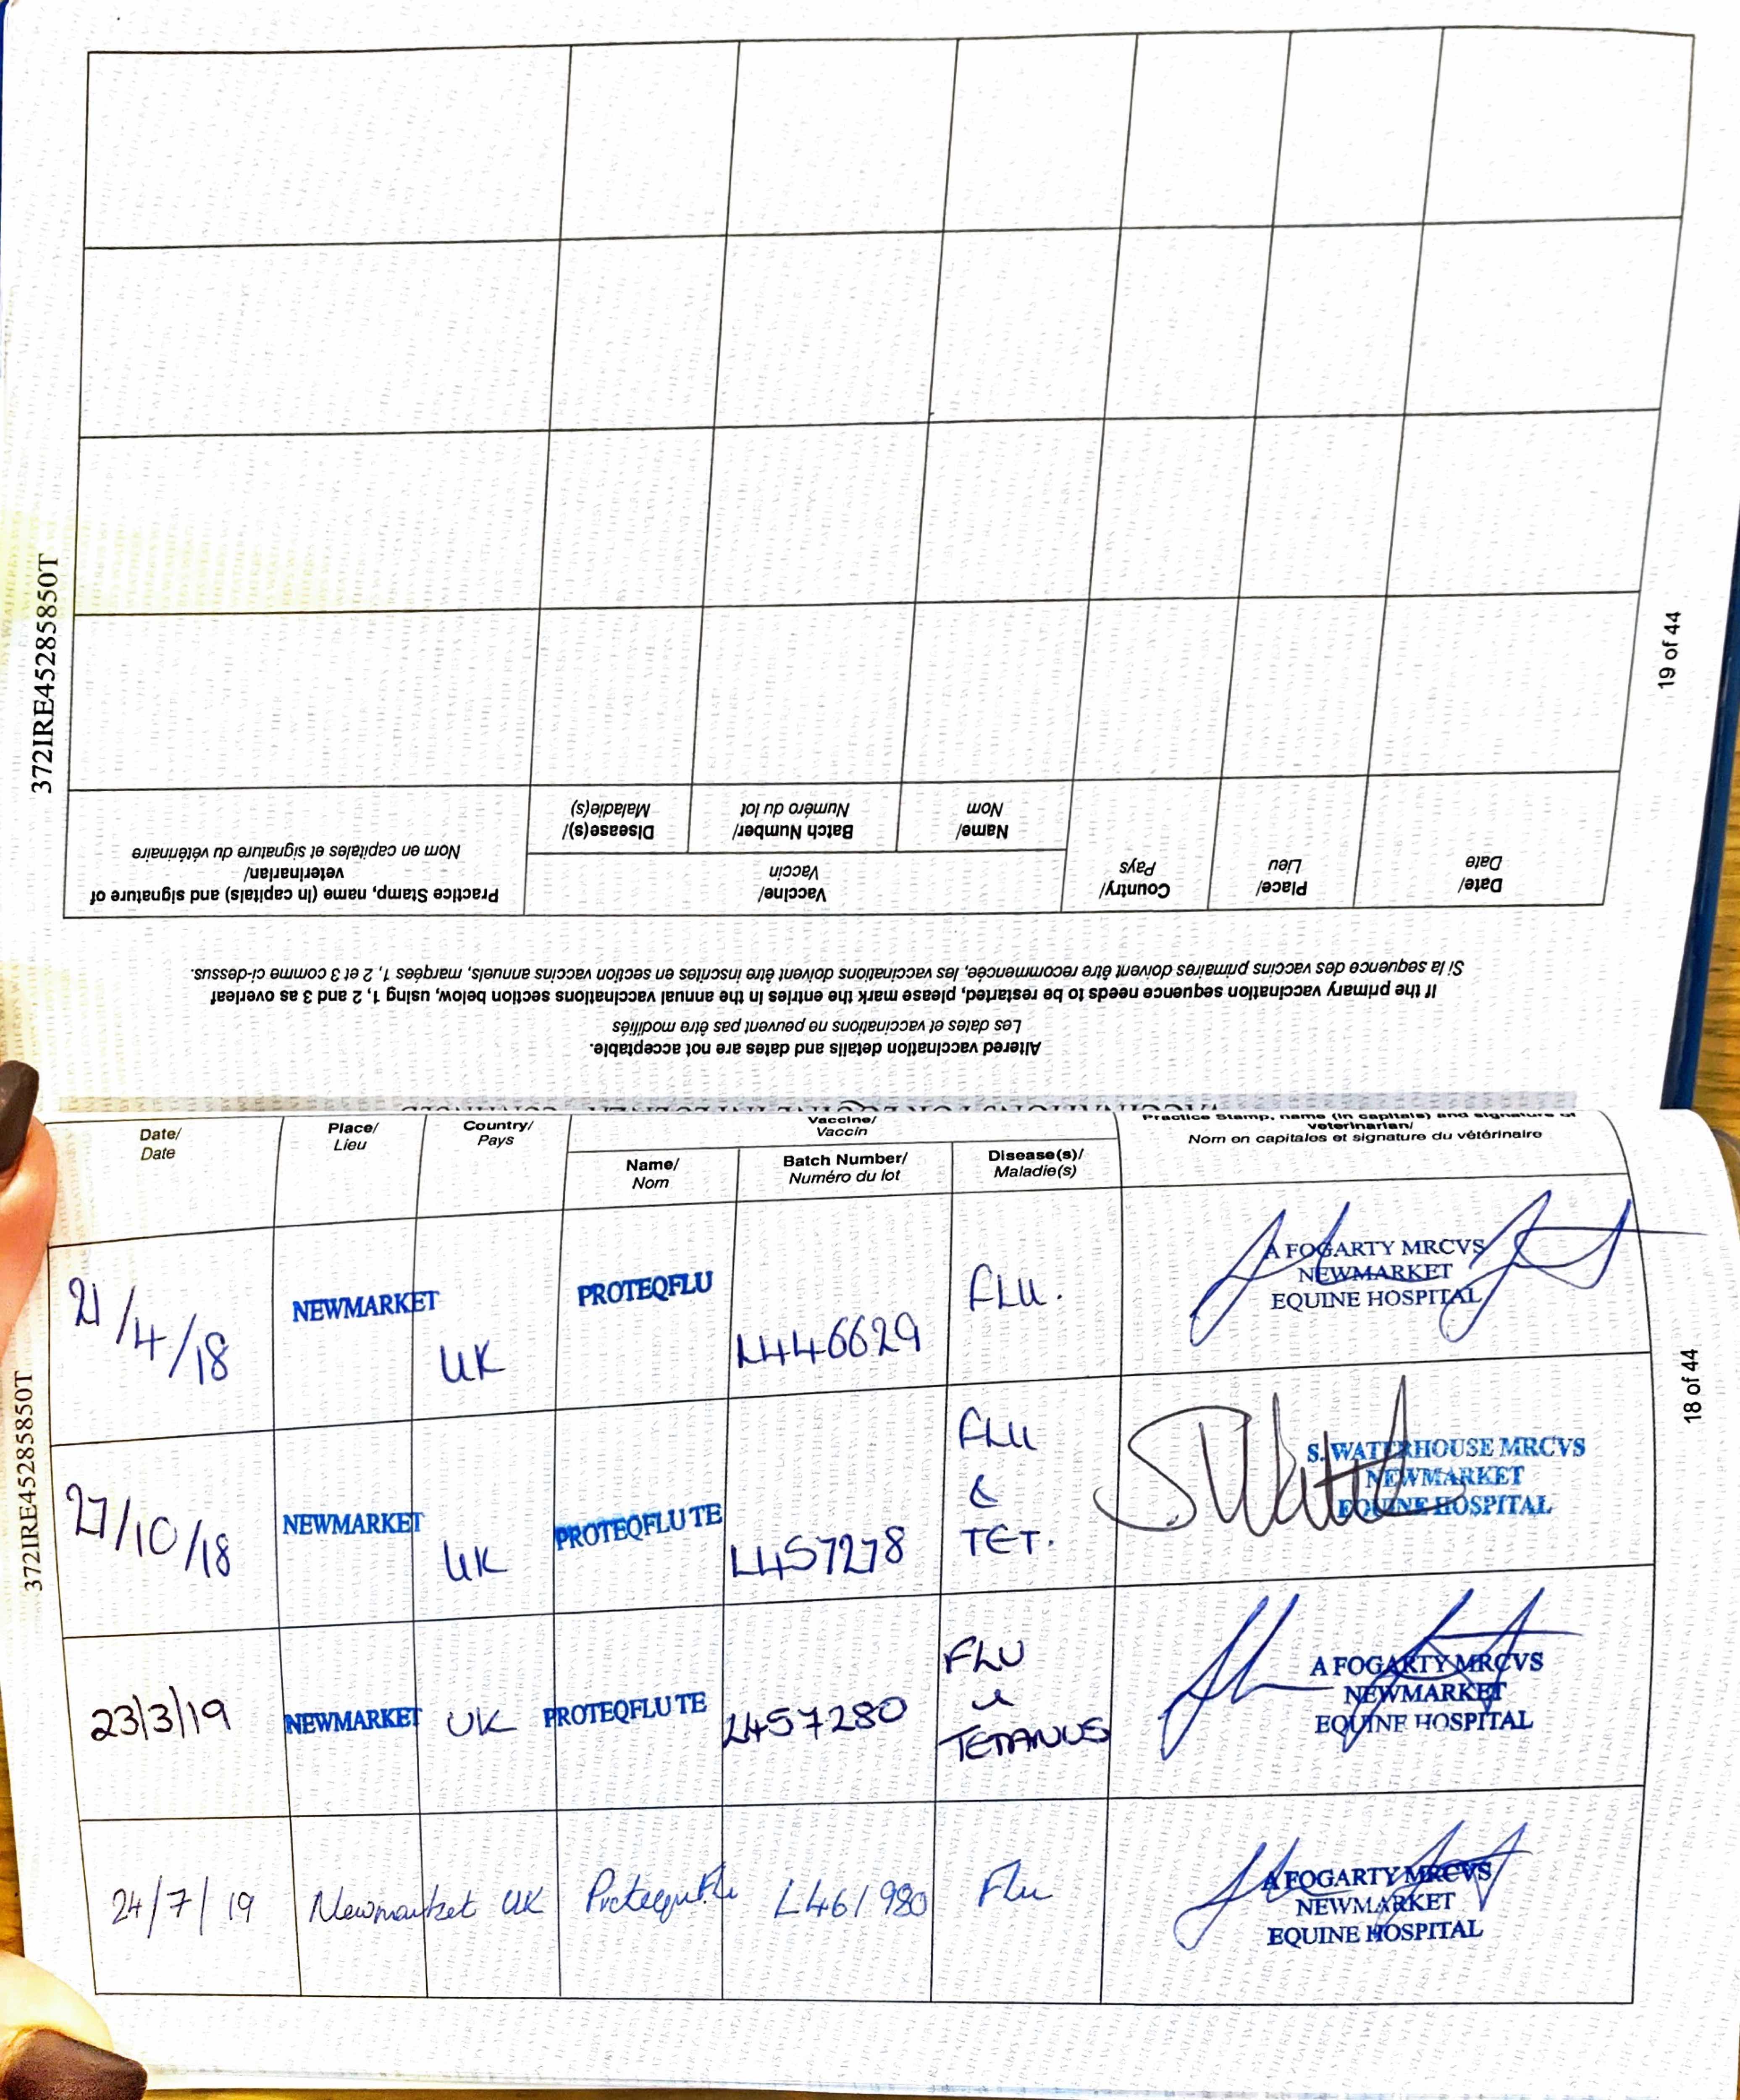 372IRE45285850T
19 of 44
VACCINATIONS FOR EQUINE INFLUENZA - CONTINUED
Altered vaccination details and dates are not acceptable.
Les dates et vaccinations ne peuvent pas être modifiés
If the primary vaccination sequence needs to be restarted, please mark the entries in the annual vaccinations section below, using 1, 2 and 3 as overleaf
Si la sequence des vaccins primaires doivent être recommencée, les vaccinations doivent être inscrites en section vaccins annuels, marqées 1, 2 et 3 comme ci-dessus.
Date/
Date
Place/
Lieu
Country/
Pays
Vaccine/
Vaccin
Name/
Nom
Batch Number/
Numéro du lot
Disease(s)/
Maladie(s)
Practice Stamp, name (in capitals) and signature of
veterinarian/
Nom en capitales et signature du vétérinaire
372IRE45285850T
18 of 44
Date/
Date
Place/
Lieu
Country/
Pays
Vaccine/
Vaccin
Name/
Nom
Batch Number/
Numéro du lot
Disease(s)/
Maladie(s)
Practice Stamp, name (in capitals) and signature of
veterinarian/
Nom en capitales et signature du vétérinaire
21/4/18 NEWMARKET UK PROTEQFLU L446629 FLU.
A FOGARTY MRCVS
NEWMARKET
EQUINE HOSPITAL
27/10/18 NEWMARKET UK PROTEQFLU TE L457278 FLU
&
TET.
S. WATERHOUSE MRCVS
NEWMARKET
EQUINE HOSPITAL
23/3/19 NEWMARKET UK PROTEQFLU TE L457280 FLU
&
TETANUS
A FOGARTY MRCVS
NEWMARKET
EQUINE HOSPITAL
24/7/19 Newmarket UK ProteqFlu L461980 Flu
A FOGARTY MRCVS
NEWMARKET
EQUINE HOSPITAL